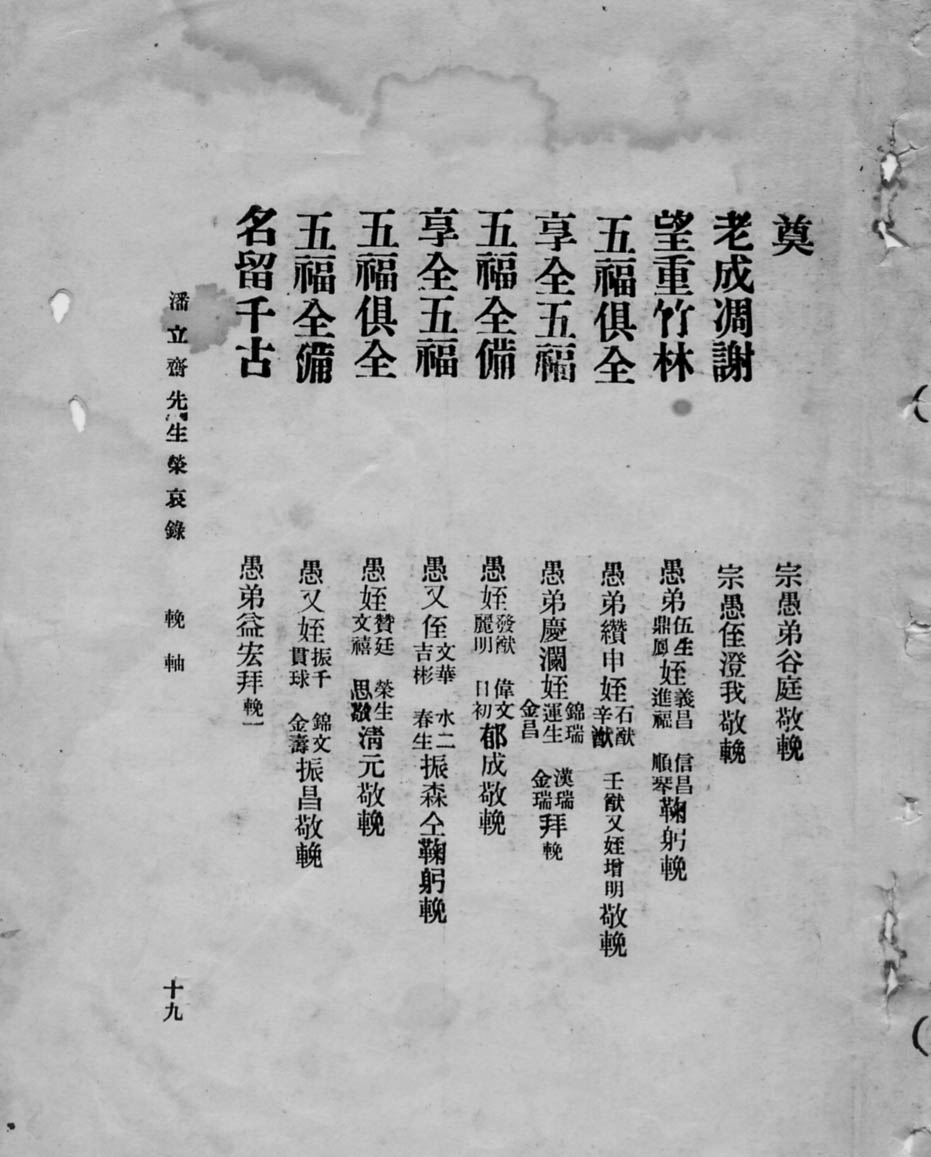 奠 宗愚弟谷庭敬輓
老成凋謝 宗愚侄澄我敬輓
望重竹林 愚弟伍生鼎鳳姪義昌進福 信昌順琴鞠躬輓
五福俱全 愚弟纘申姪石猷辛猷 壬猷又姪增明敬輓
享全五福 愚弟慶瀾姪錦瑞運生金昌 漢瑞金瑞拜輓
五福全備 愚姪發猷麗明 偉文日初郁成敬輓
享全五福 愚又侄文華吉彬 水二春生振森仝鞠躬輓
五福俱全 愚姪贊廷文禧 榮生思敬清元敬輓
五福全備 愚又姪振千貫球 錦文金壽振昌敬輓
名留千古 愚弟益宏拜輓一
潘立齋先生榮哀錄 輓軸 十九